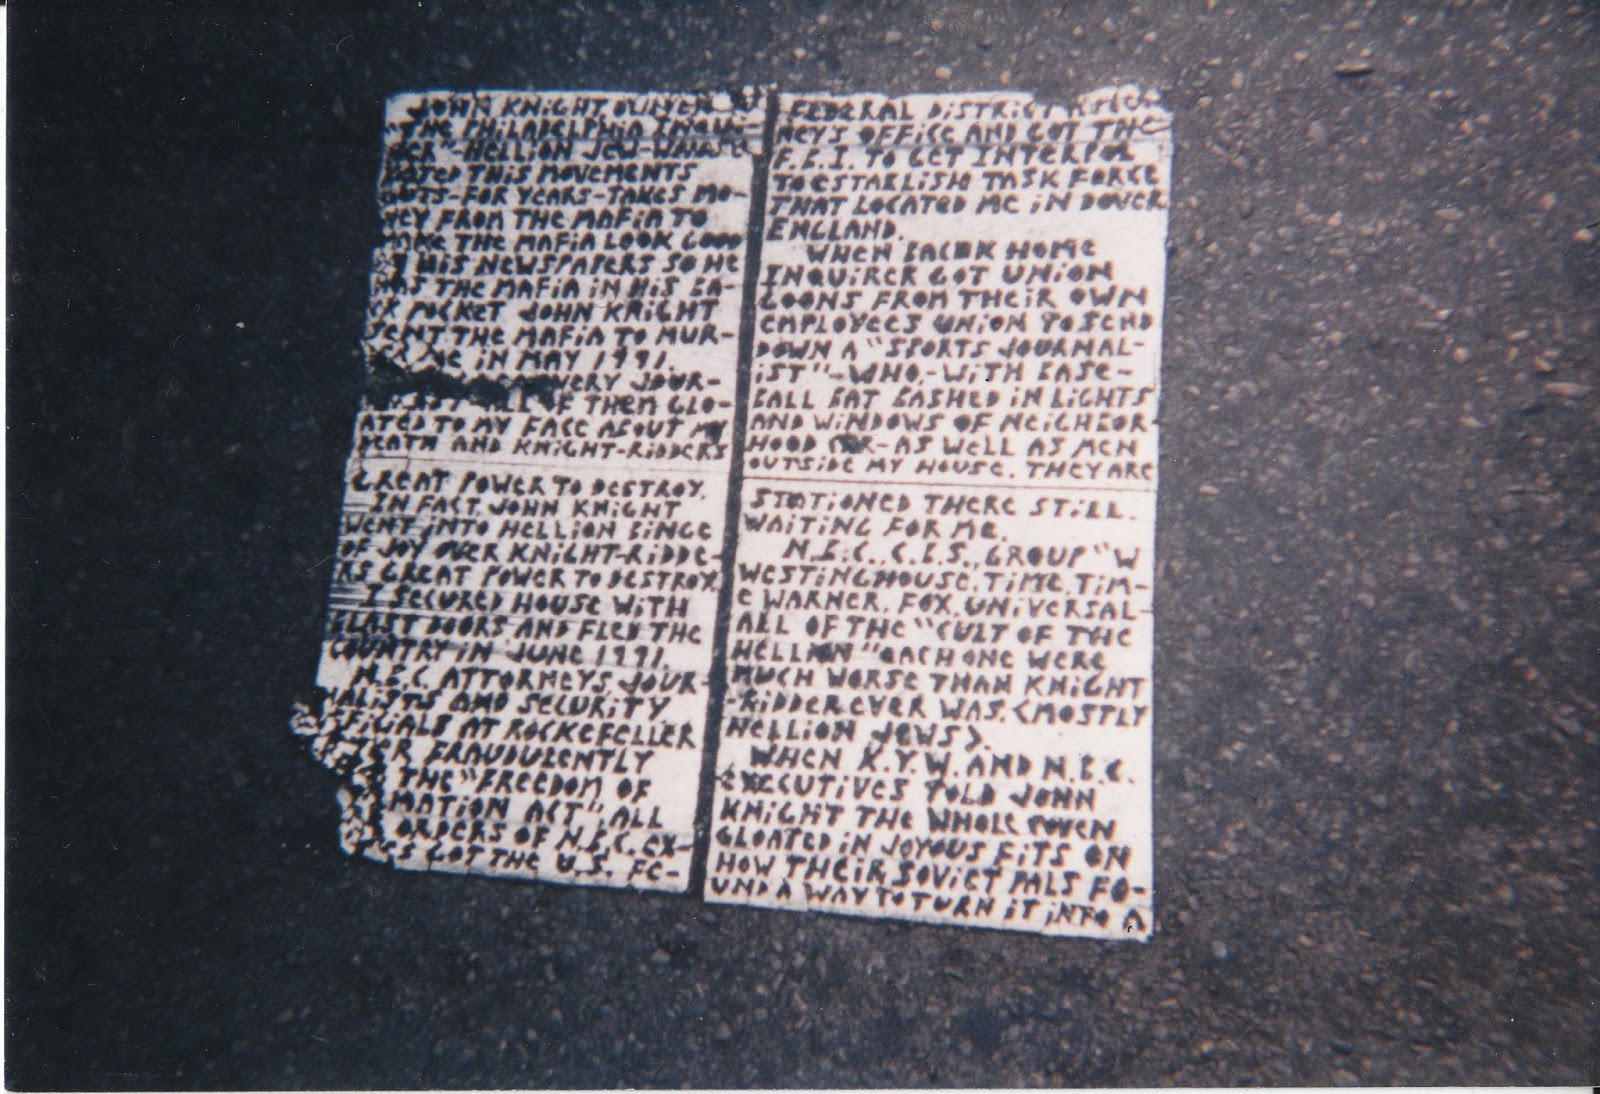 JOHN KNIGHT OWNER OF
"THE PHILADELPHIA INQUI-
RER"-HELLION JEW-
THIS MOVEMENTS
GUTS-FOR YEARS-TAKES MO-
NEY FROM THE MAFIA TO
MAKE THE MAFIA LOOK GOOD
HIS NEWSPAPERS SO HE
HAS THE MAFIA IN HIS BA-
CK POCKET JOHN KNIGHT
SENT THE MAFIA TO MUR-
DER ME IN MAY 1991.
VERY JOUR-
ALL OF THEM GLO-
ATED TO MY FACE ABOUT MY
DEATH AND KNIGHT-RIDDERS
GREAT POWER TO DESTROY.
IN FACT, JOHN KNIGHT
WENT INTO HELLION BINGE
OF JOY OVER KNIGHT-RIDDE-
RS GREAT POWER TO DESTROY.
I SECURED HOUSE WITH
BLAST DOORS AND FLED THE
COUNTRY IN JUNE 1991.
N.B.C. ATTORNEYS, JOUR-
NALISTS AND SECURITY
OFFICIALS AT ROCKEFELLER
FRAUDULENTLY
THE "FREEDOM OF
MATION ACT" ALL
ORDERS OF N.B.C. EX-
GOT THE U.S. FE-
FEDERAL DISTRICT
NEY'S OFFICE AND GOT THE
F.B.I. TO GET INTERPOL
TO ESTABLISH TASK FORCE
THAT LOCATED ME IN DOVER
ENGLAND.
WHEN BACK HOME
INQUIRER GOT UNION
GOONS FROM THEIR OWN
EMPLOYEES UNION TO SEND
DOWN A "SPORTS JOURNAL-
IST"-WHO,-WITH BASE-
BALL BAT BASHED IN LIGHTS
AND WINDOWS OF NEIGHBOR-
HOOD CAR-AS WELL AS MEN
OUTSIDE MY HOUSE. THEY ARE
STATIONED THERE STILL.
WAITING FOR ME.
N.B.C., C.B.S., GROUP "W
WESTINGHOUSE, TIME, TIM-
E WARNER, FOX, UNIVERSAL-
ALL OF THE "CULT OF THE
HELLION" EACH ONE WERE
MUCH WORSE THAN KNIGHT
-RIDDER EVER WAS, <MOSTLY
HELLION JEWS>.
WHEN K.Y.W. AND N.B.C.
EXECUTIVES TOLD JOHN
KNIGHT THE WHOLE COVEN
GLOATED IN JOYOUS FITS ON
HOW THEIR SOVIET PALS FO-
UND A WAY TO TURN IT INTO A